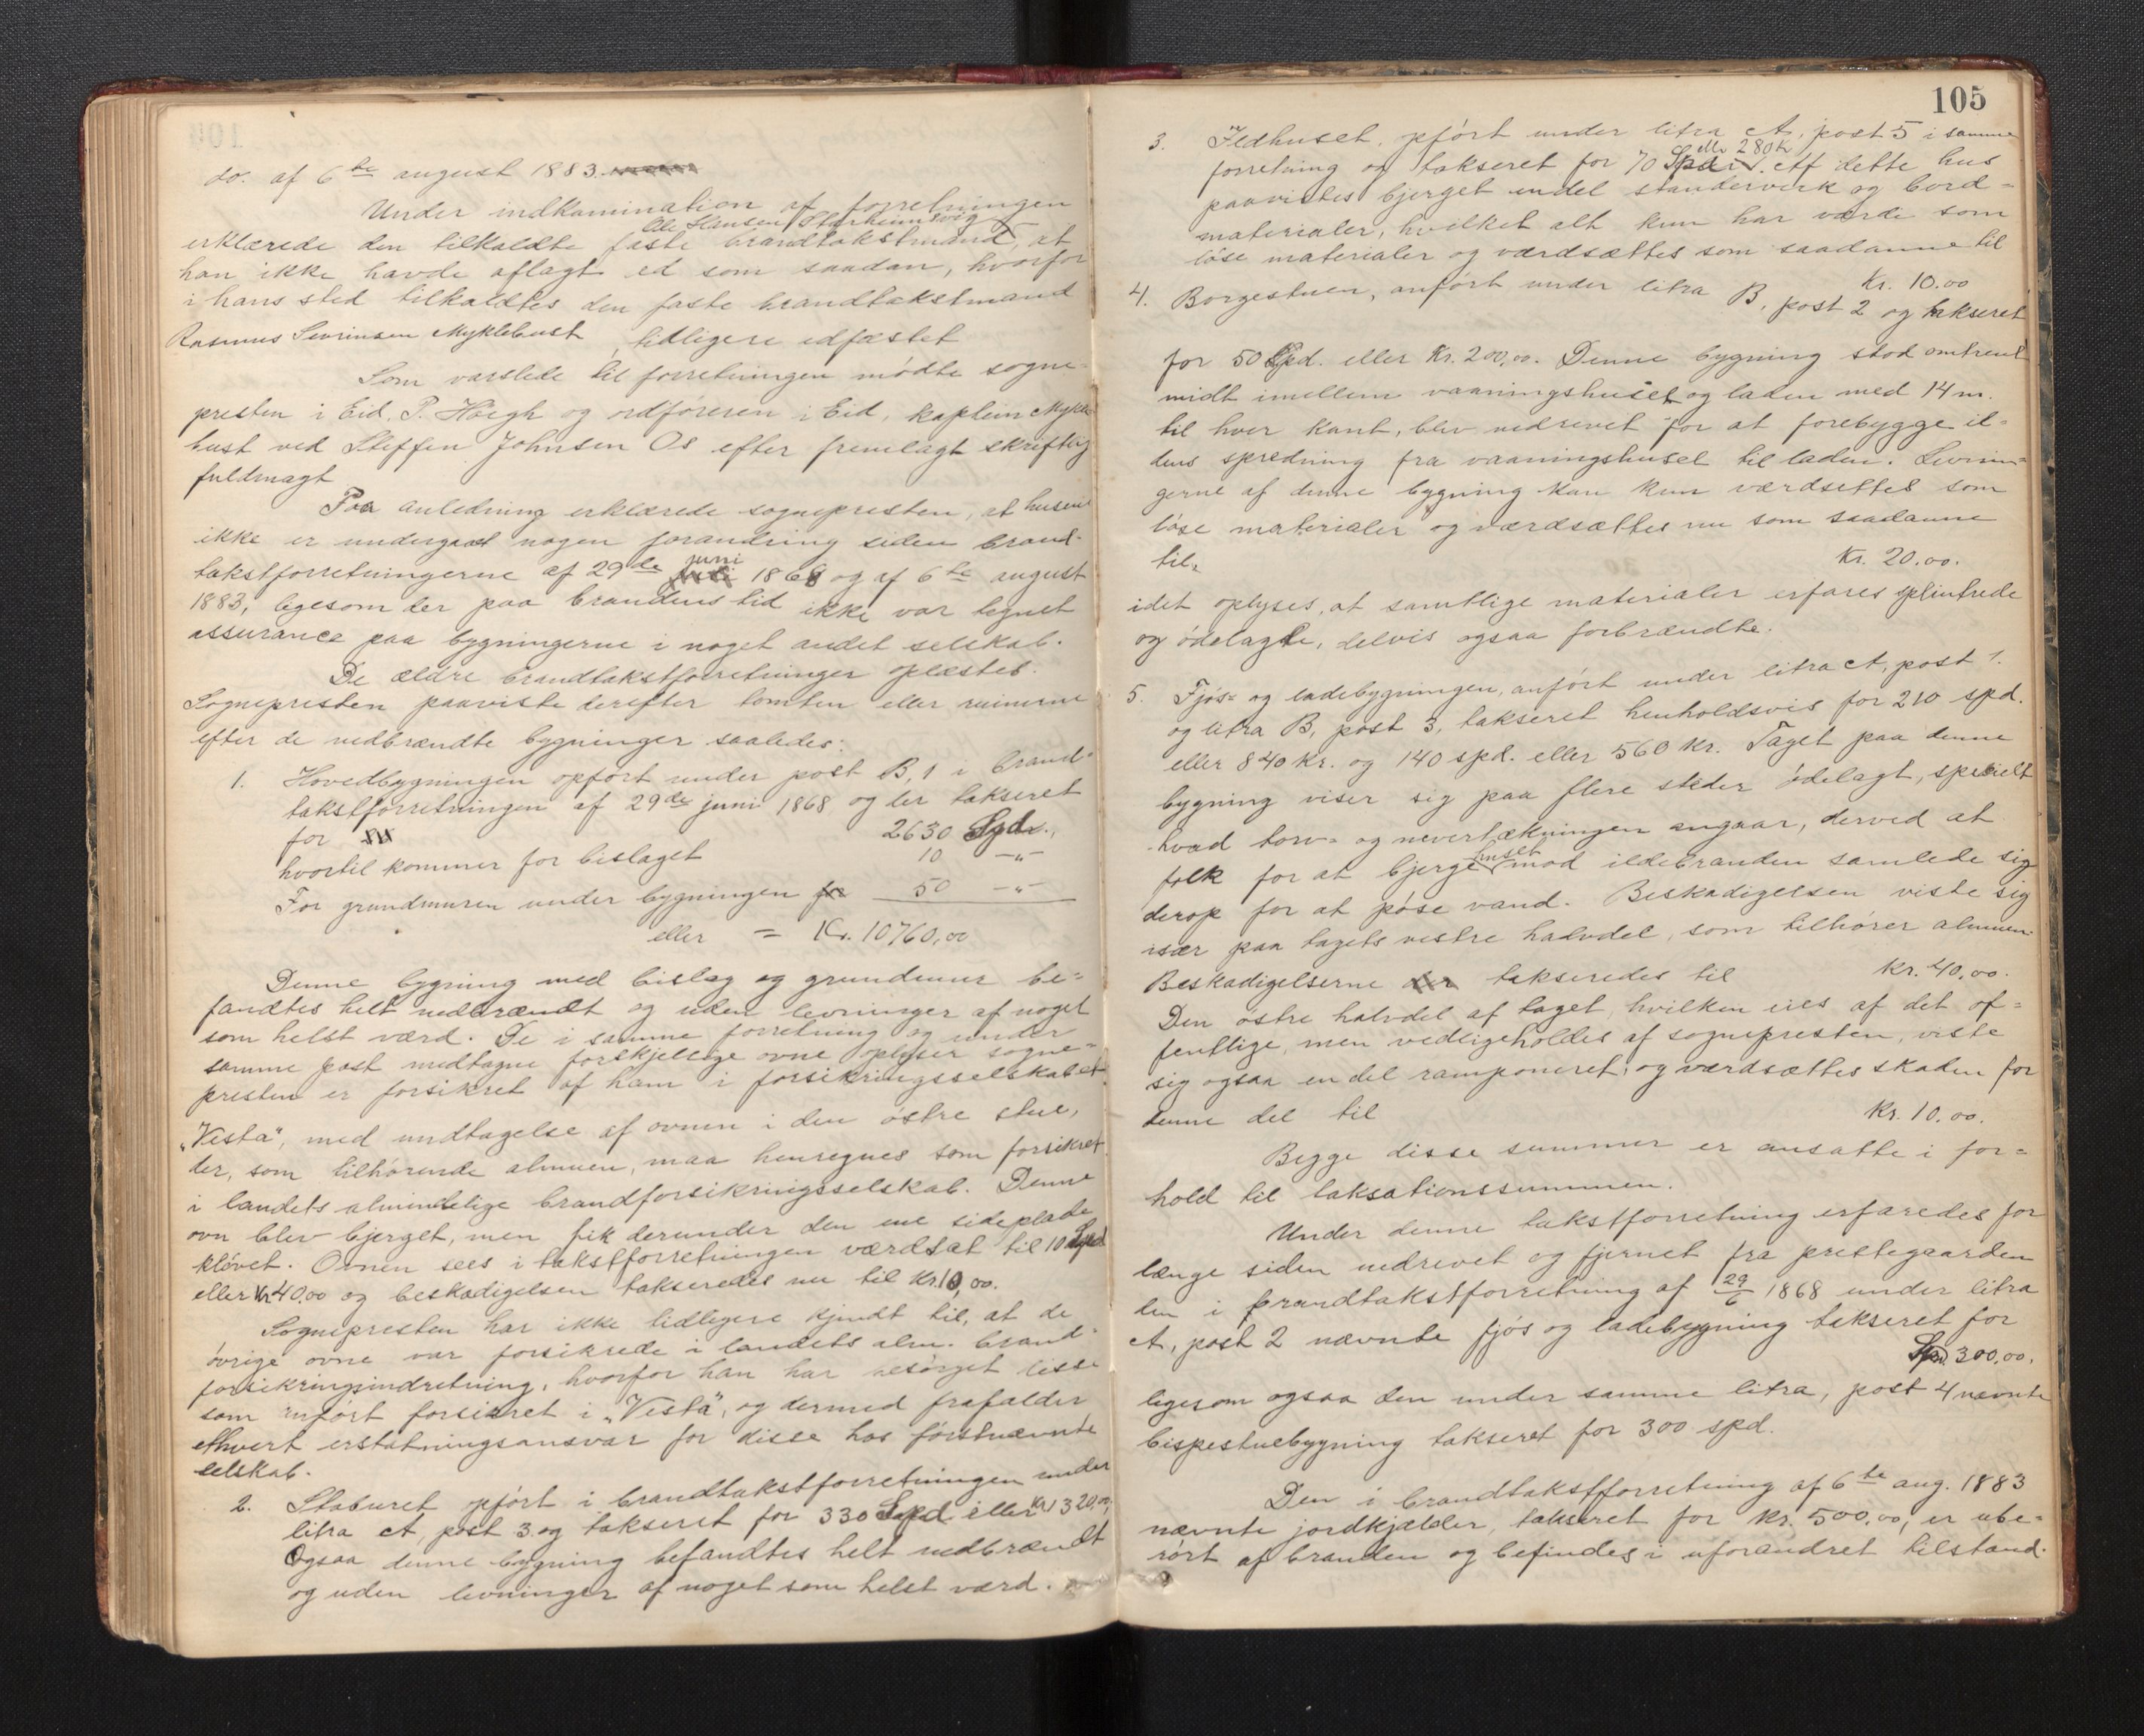 do. af 6te august 1883.
Under indkamination af forretningen
Ole Hansen Starheimsvig
erklærede den tilkaldte faste brandtakstmand, at
han ikke havde aflagt ed som saadan, hvorfor
i hans sted tilkaldtes den faste brandtakstmand
Rasmus Sevrinsen Myklebust, tidligere edfæstet
Som varslede til forretningen mødte sogne-
presten i Eid, P. Høegh og ordføreren i Eid, kaptein Mykle-
bust ved Steffen Johnsen Os efter fremlagt skriftlig
fuldmagt
Paa anledning erklærede sognepresten, at husene
ikke er undergaaet nogen forandring siden brand-
juni
takstforretningerne af 29de 1868 og af 6te august
1883, ligesom der paa brandens tid ikke var tegnet
assurance paa bygningerne i noget andet selskab.
De ældre brandtakstforretninger oplæstes.
Sognepresten paaviste derefter tomten eller ruinerne
efter de nedbrændte bygninger saaledes:
1. Hovedbygningen opført under post B, 1 i brand-
takstforretningen af 29de juni 1868 og der takseret
for 2630 Spdr.,
hvortil kommer for bislaget 10 -"-
For grundmuren under bygningen 50 -"-
eller = Kr. 10760,00
Denne bygning med bislag og grundmur be-
fandtes helt nedbrændt og uden levninger af noget
som helst værd. De i samme forretning og under
samme post medtagne forskjellige ovne oplyser sogne-
presten er forsikret af ham i forsikringsselskabet
"Vesta", med undtagelse af ovnen i den østre stue,
der, som tilhørende almuen, maa henregnes som forsikret
i landets almindelige brandforsikringsselskab. Denne
ovn blev bjerget, men fik derunder den ene sideplade
kløvet. Ovnen sees i takstforretningen værdsat til 10 Spd
eller Kr 40.00 og beskadigelsen takseredes nu til Kr. 10,00.
Sognepresten har ikke tidligere kjendt til, at de
øvrige ovne var forsikrede i landets alm. brand-
forsikringsindretning, hvorfor han har besørget disse
som anført forsikret i "Vesta", og dermed frafalder
ethvert erstatningsansvar for disse hos førstnævnte
selskab.
2. Staburet opført i brandtakstforretningen under
litra A, post 3 og takseret for 330 Spd eller Kr 1320,00,
Ogsaa denne bygning befandtes helt nedbrændt
og uden levninger af noget som helst værd.
105
3. Ildhuset, opført under litra A, post 5 i samme
ellr 280 kr
forretning og takseret for 70 Spd. Af dette hus
paavistes bjerget endel standerverk og bord-
materialer, hvilket alt kun har værde som
løse materialer og værdsættes som saadanne til
Kr. 10.00
4. Borgestuen, anført under litra B, post 2 og takseret
for 50 Spd. eller Kr. 200,00. Denne bygning stod omtrent
midt imellem vaaningshuset og laden med 14 m.
til hver kant, blev nedrevet for at forebygge il-
dens spredning fra vaaningshuset til laden. Levnin-
gerne af denne bygning kan kun værdsettes som
løse materialer og værdsættes nu som saadanne
til Kr. 20.00.
idet oplyses, at samtlige materialer erfares splintrede
og ødelagte, delvis ogsaa forbrændte.
5. Fjøs- og ladebygningen, anført under litra A, post 1.
og litra B, post 3, takseret henholdsvis for 210 spd.
eller 840 Kr. og 140 spd. eller 560 Kr. Taget paa denne
bygning viser sig paa flere steder ødelagt, specielt
hvad torv- og nevertækningen angaar, derved at
huset
folk for at bjerge mod ildebranden samlede sig
derop for at pøse vand. Beskadigelsen viste sig
især paa tagets vestre halvdel, som tilhører almuen.
Beskadigelserne takseredes til Kr. 40,00.
Den østre halvdel af taget, hvilken eies af det of-
fentlige, men vedligeholdes af sognepresten, viste
sig ogsaa en del ramponeret, og værdsættes skaden for
denne del til Kr. 10.00.
Begge disse summer er ansatte i for-
hold til taksationssummen.
Under denne takstforretning erfaredes for
længe siden nedrevet og fjernet fra prestegaarden
den i brandtakstforretning af 29/6 1868 under litra
A, post 2 nævnte fjøs og ladebygning takseret for
Spd. 300,00,
ligesom ogsaa den under samme litra, post 4 nævnte
bispestuebygning takseret for 300 spd.
Den i brandtakstforretning af 6te aug. 1883
nævnte jordkjælder, takseret for Kr. 500,00, er ube-
rørt af branden og befindes i uforandret tilstand.